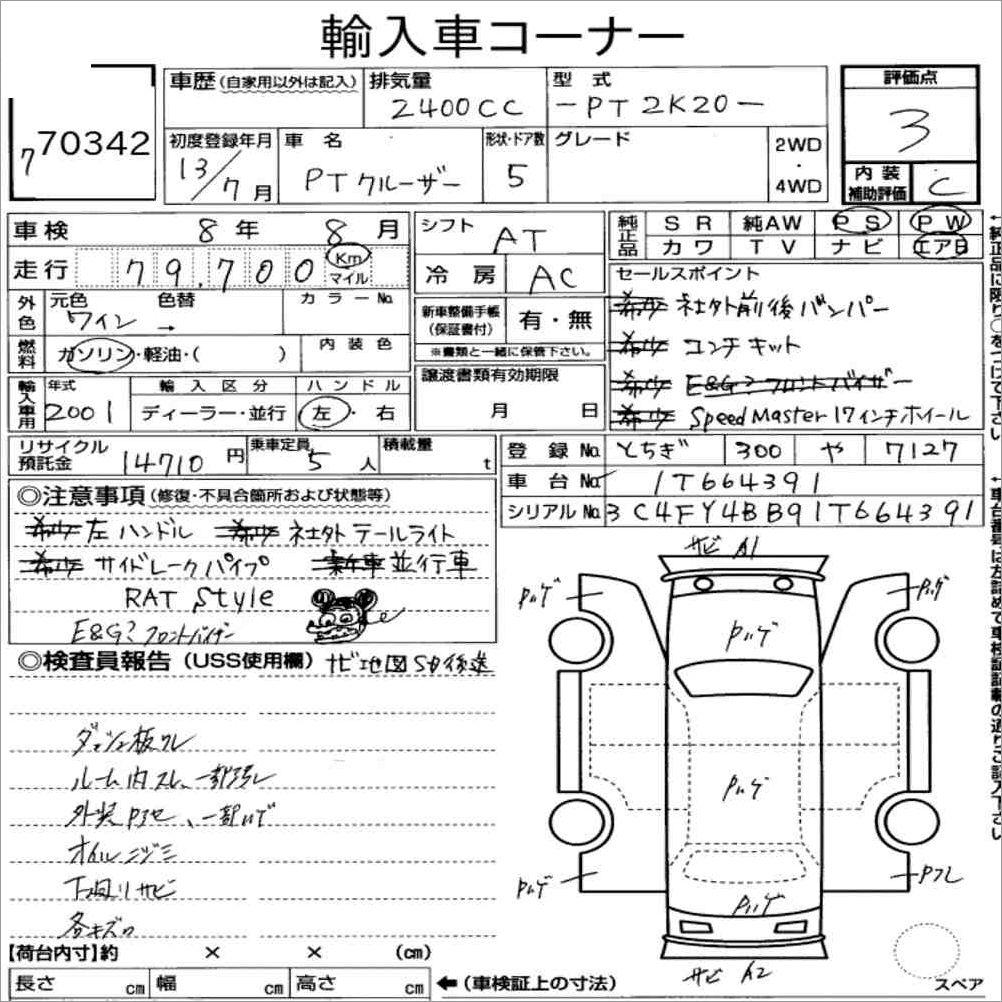 輸入車コーナー
770342
車歴 (自家用以外は記入) 排気量 2400CC 型式 -PT2K20- 評価点 3
初度登録年月 13/7月 車名 PTクルーザー 形状・ドア数 5 グレード 2WD・4WD 内装補助評価 C
車検 8年 8月 シフト AT 純正品 SR 純AW PS PW
走行 79,700 Km マイル 冷房 AC カワ TV ナビ エアB
外色 元色 ワイン 色替 → カラーNo. 新車整備手帳(保証書付) 有・無
セールスポイント
社外前後バンパー
コンチキット
E&G? フロントバイザー
Speed Master 17インチホイール
燃料 ガソリン・軽油・( ) 内装色 ※書類と一緒に保管下さい。
輸入車用 年式 2001 輸入区分 ディーラー・並行 ハンドル 左・右 譲渡書類有効期限 月 日
リサイクル預託金 14710円 乗車定員 5人 積載量 t
登録No. とちぎ 300 や 7127
車台No. 1T664391
シリアルNo. 3C4FY4BB91T664391
◎注意事項 (修復・不具合箇所および状態等)
左ハンドル 社外テールライト
サイドレークパイプ 並行車
RAT Style
E&G? フロントバイザー
◎検査員報告 (USS使用欄) ナビ地図SD後送
ルーム内スレ、一部汚レ
オイルニジミ
下回リサビ
各キズ
【荷台内寸】約 × × (cm)
長さ cm 幅 cm 高さ cm ←(車検証上の寸法)
サビ A1
Pハゲ
Pハゲ
Pハゲ
Pハゲ
Pハゲ
Pハゲ
サビ A2
スペア
↑純正品に限り○をつけて下さい
↑車台番号は左詰めで車検証記載の通りご記入下さい